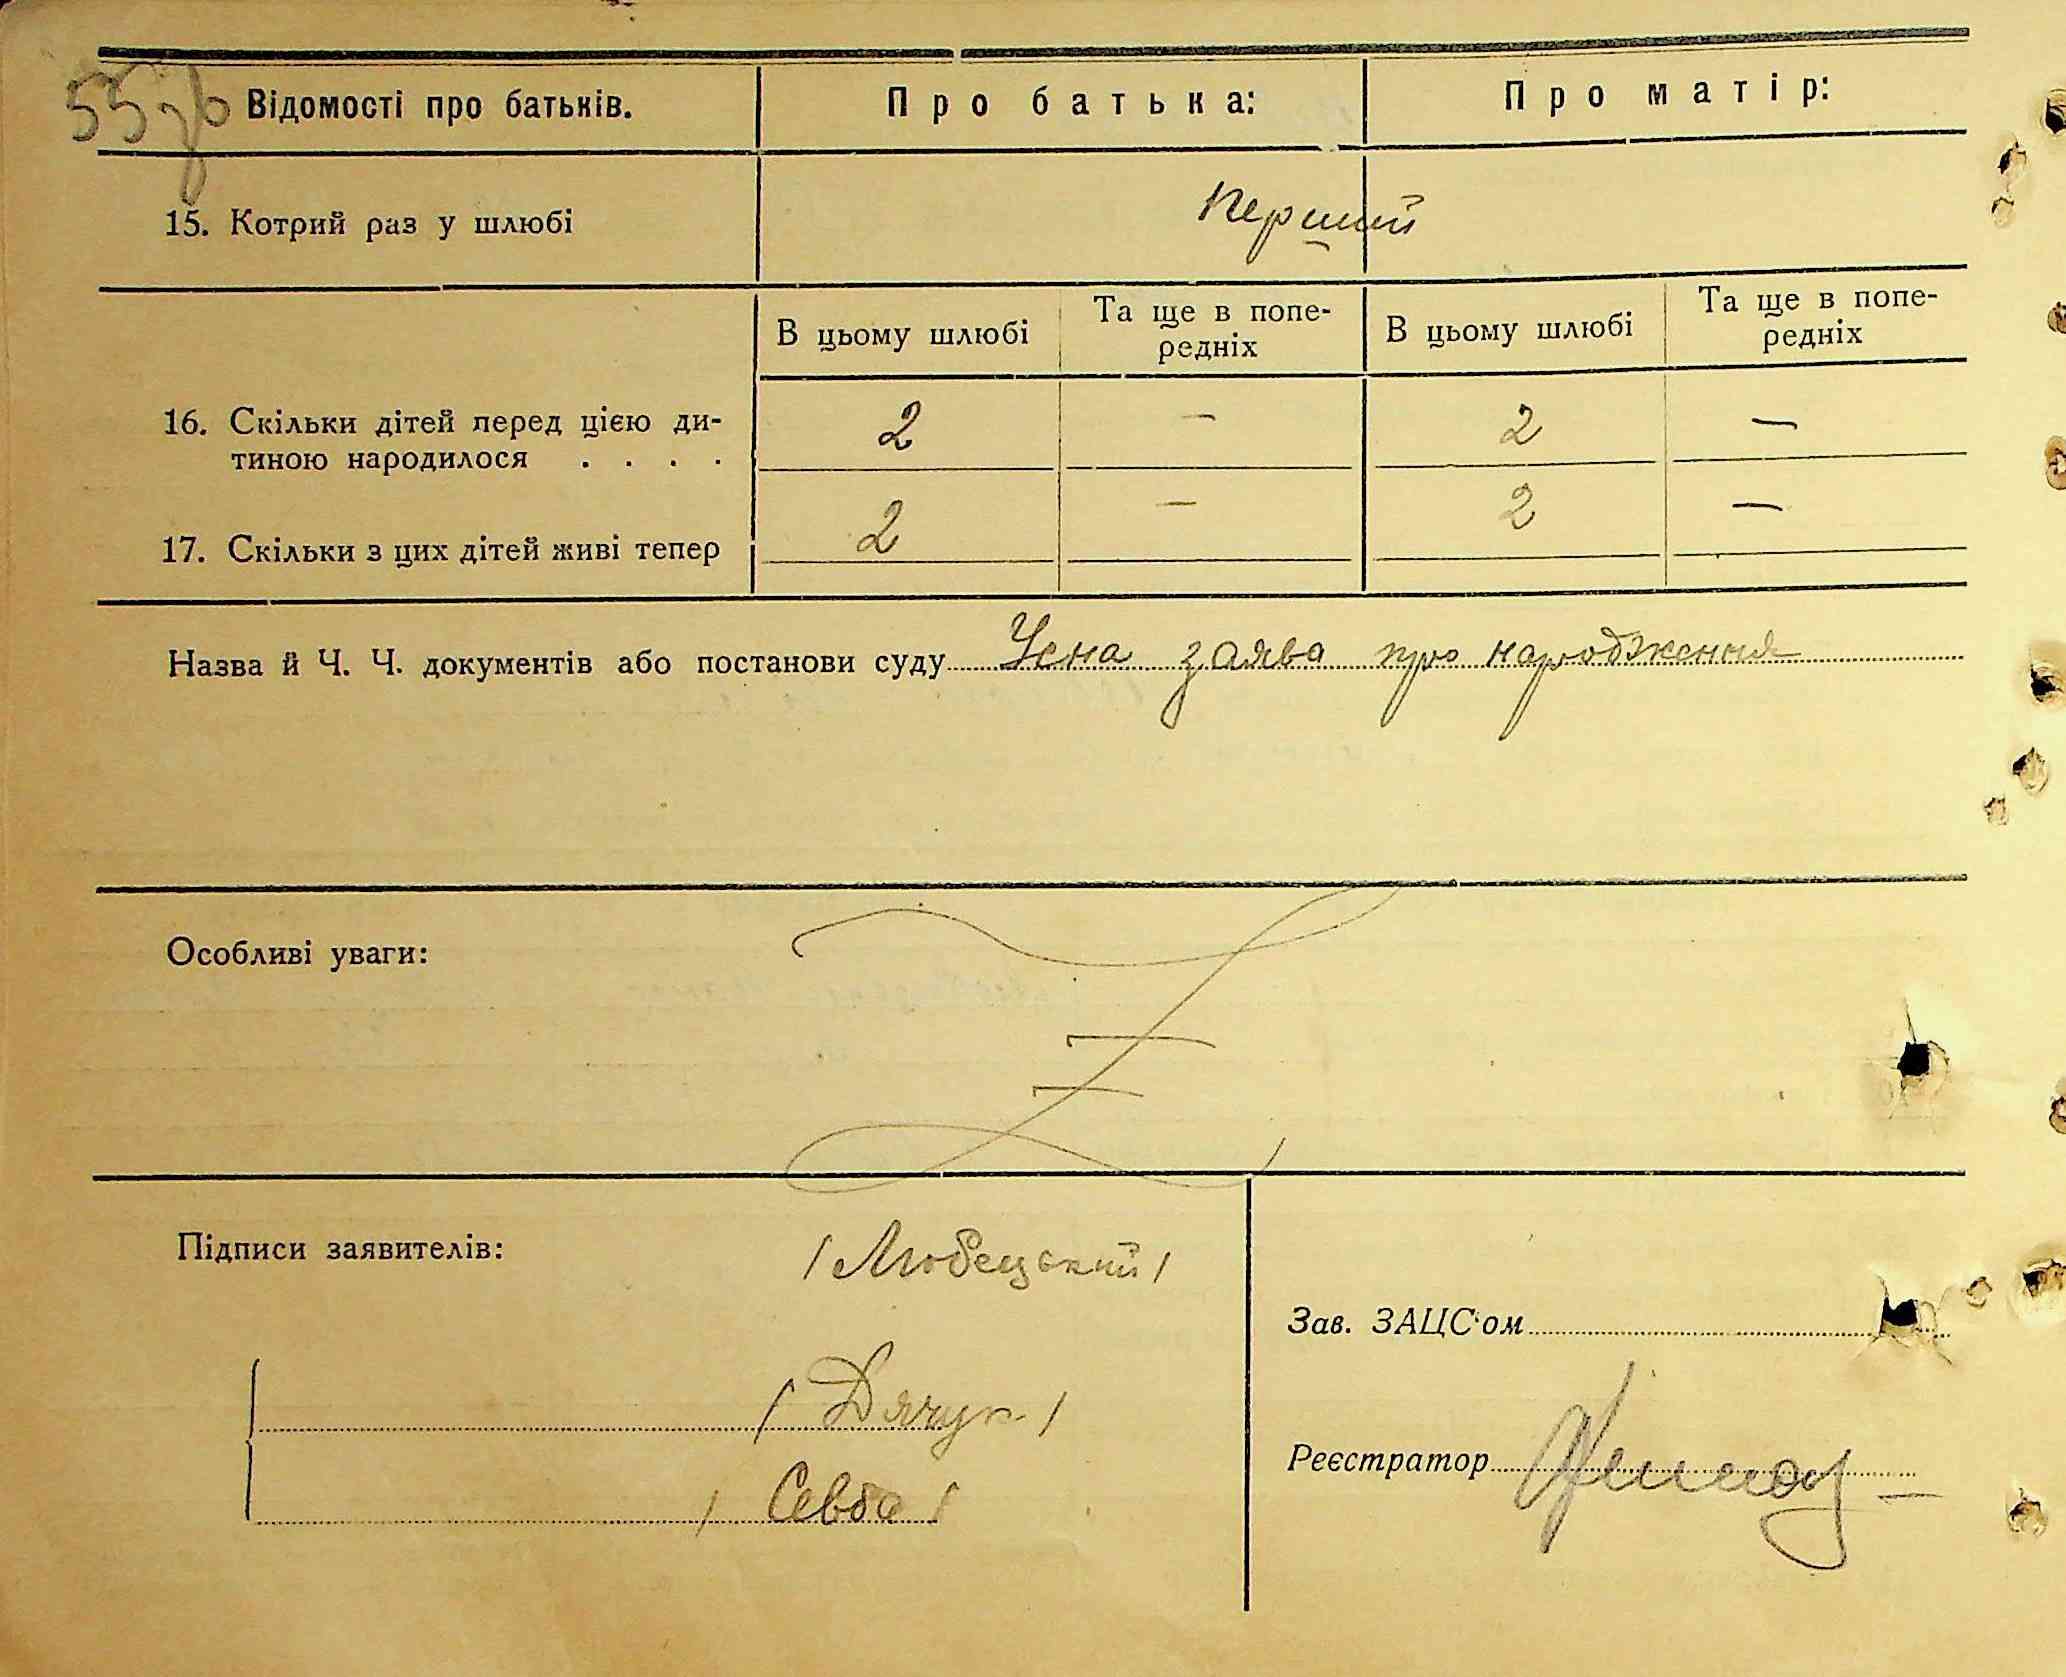 55 зв
Відомості про батьків.
Про батька:
Про матір:
15. Котрий раз у шлюбі
перший
В цьому шлюбі
Та ще в попе-
редніх
В цьому шлюбі
Та ще в попе-
редніх
16. Скільки дітей перед цією ди-
тиною народилося . . . .
2 — 2 —
17. Скільки з цих дітей живі тепер
2 — 2 —
Назва й Ч. Ч. документів або постанови суду Усна заява про народження
Особливі уваги:
Підписи заявителів:
/ Любецький /
/ Дячук /
/ Севба /
Зав. ЗАЦС'ом
Реєстратор